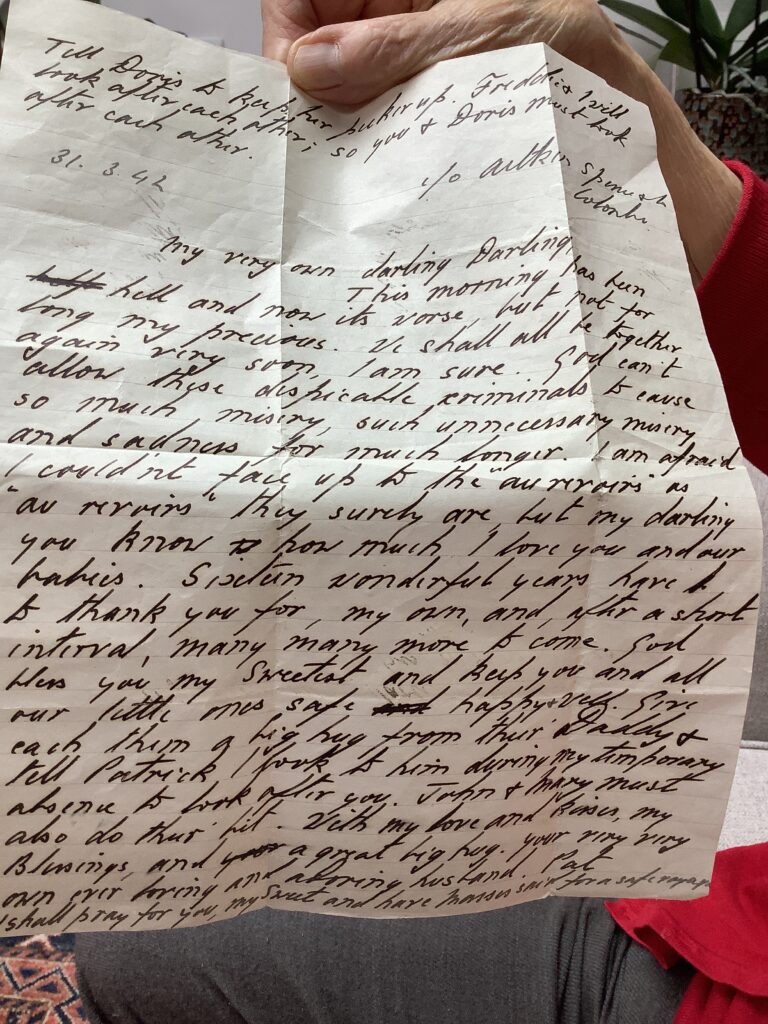 Tell Doris to keep her pecker up. Freddie & I will
look after each other; so you & Doris must look
after each other.
31. 3. 42
c/o Aitken Spence &
Colombo.
My very own darling Darling,
This morning has been
hell and now its worse, but not for
long my precious. We shall all be together
again very soon, I am sure. God can't
allow these dispicable criminals to cause
so much misery, such unnecessary misery
and sadness for much longer. I am afraid
I couldn't face up to the "au revoirs" as
"au revoirs" they surely are, but my darling
you know how much I love you and our
babies. Sixteen wonderful years have I
to thank you for, my own, and, after a short
interval, many many more to come. God
bless you my Sweetest and keep you and all
our little ones safe happy & well. Give
each them a big hug from their Daddy &
tell Patrick I look to him during my temporary
absence to look after you. John & Mary must
also do their bit. With my love and kisses, my
Blessings, and a great big hug. Your very very
own ever loving and adoring husband. Pat
I shall pray for you, my Sweet and have Masses said for a safe voyage